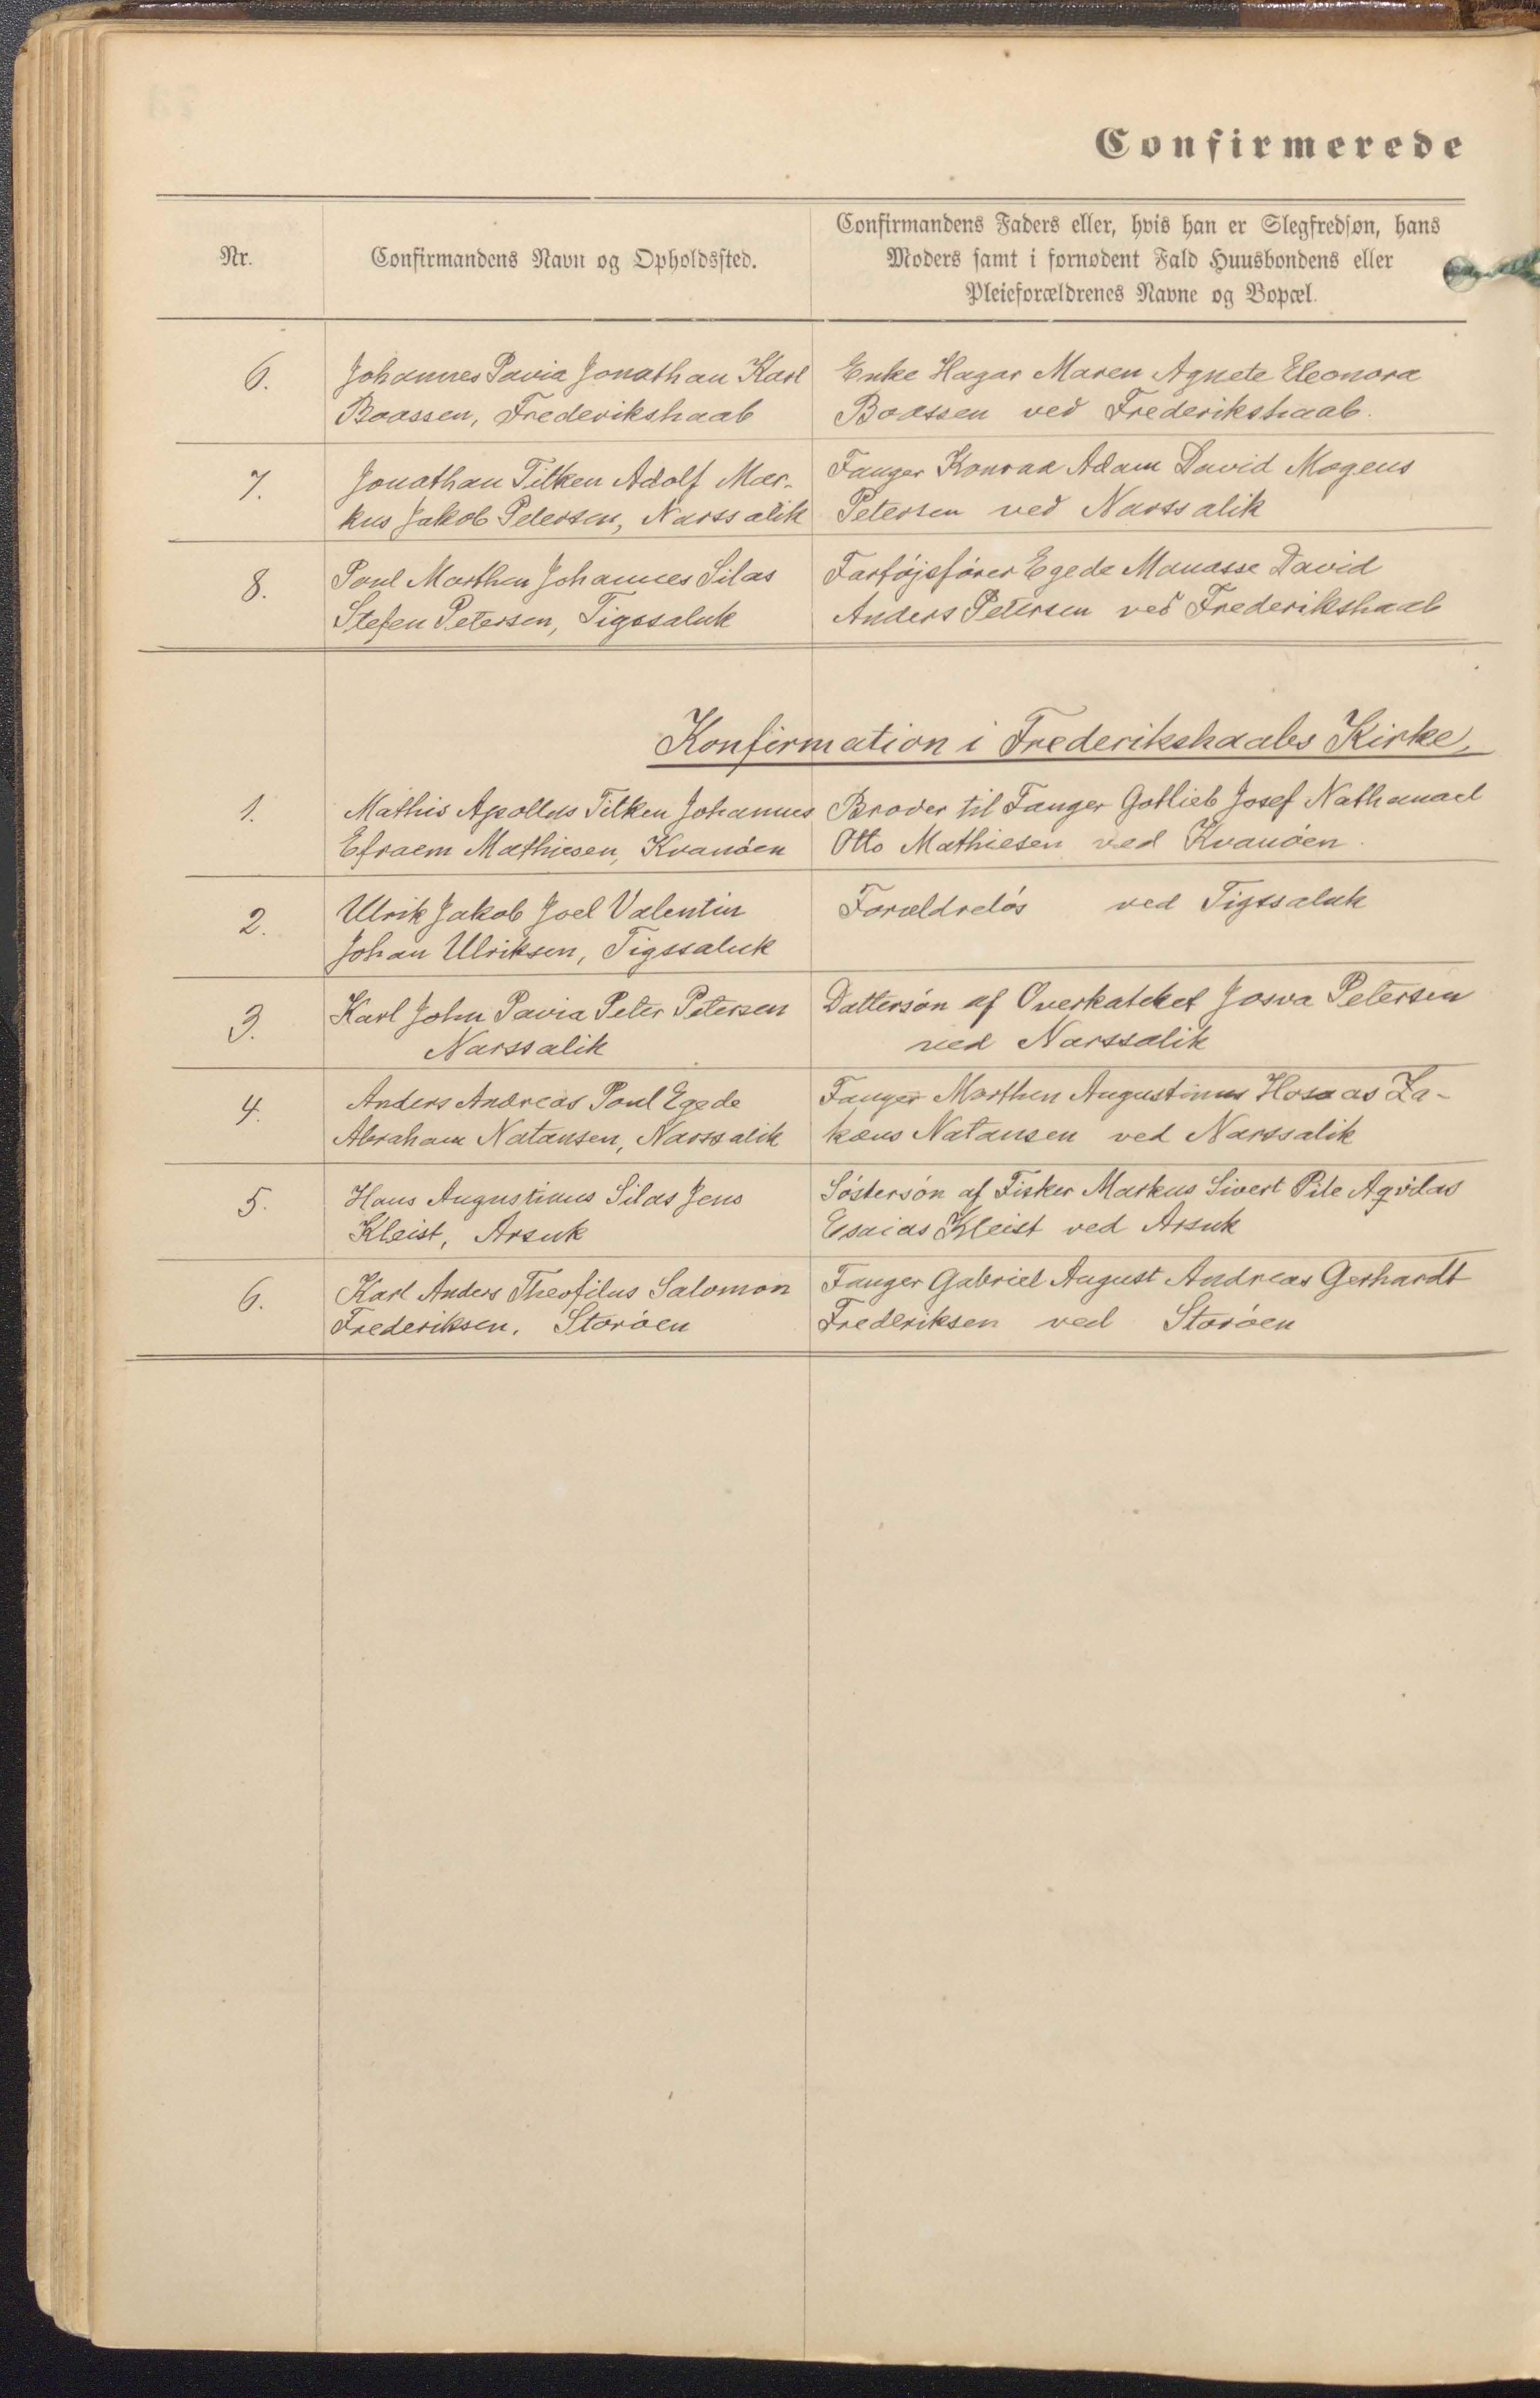 Confirmerede
Nr.
Confirmandens Navn og Opholdssted.
Confirmandens Faders eller, hvis han er Slegfredsøn, hans
Moders samt i fornødent Fald Huusbondens eller
Pleieforældrenes Navne og Bopæl.
6.
Johannes Pavia Jonathan Karl
Boassen, Frederikshaab
Enke Hagar Maren Agnete Eleonora
Boassen ved Frederikshaab.
7.
Jonathan Tilken Adolf Mar-
kus Jakob Petersen, Narssalik
Fanger Konrad Adam David Mogens
Petersen ved Narssalik
8.
Poul Morthen Johannes Silas
Stefen Petersen, Tigssaluk
Fartøjsfører Egede Manasse David
Anders Petersen ved Frederikshaab
Konfirmation i Frederikshaabs Kirke,
1.
Mathis Apollus Tilken Johannes
Efraem Mathiesen, Kvanøen
Broder til Fanger Gotlieb Josef Nathanael
Otto Mathiesen ved Kvanøen.
2.
Ulrik Jakob Joel Valentin
Johan Ulriksen, Tigssaluk
Forældreløs ved Tigssaluk
3.
Karl John Pavia Peter Petersen
Narssalik
Dattersøn af Overkateket Josva Petersen
ved Narssalik
4.
Anders Andreas Poul Egede
Abraham Natansen, Narssalik
Fanger Morthen Augustinus Hoseas Za-
kæus Natansen ved Narssalik
5.
Hans Augustinus Silas Jens
Kleist, Arsuk
Søstersøn af Fisker Markus Sivert Pile Aqvilas
Esaias Kleist ved Arsuk
6.
Karl Anders Theofilus Salomon
Frederiksen, Storøen
Fanger Gabriel August Andreas Gerhardt
Frederiksen ved Storøen